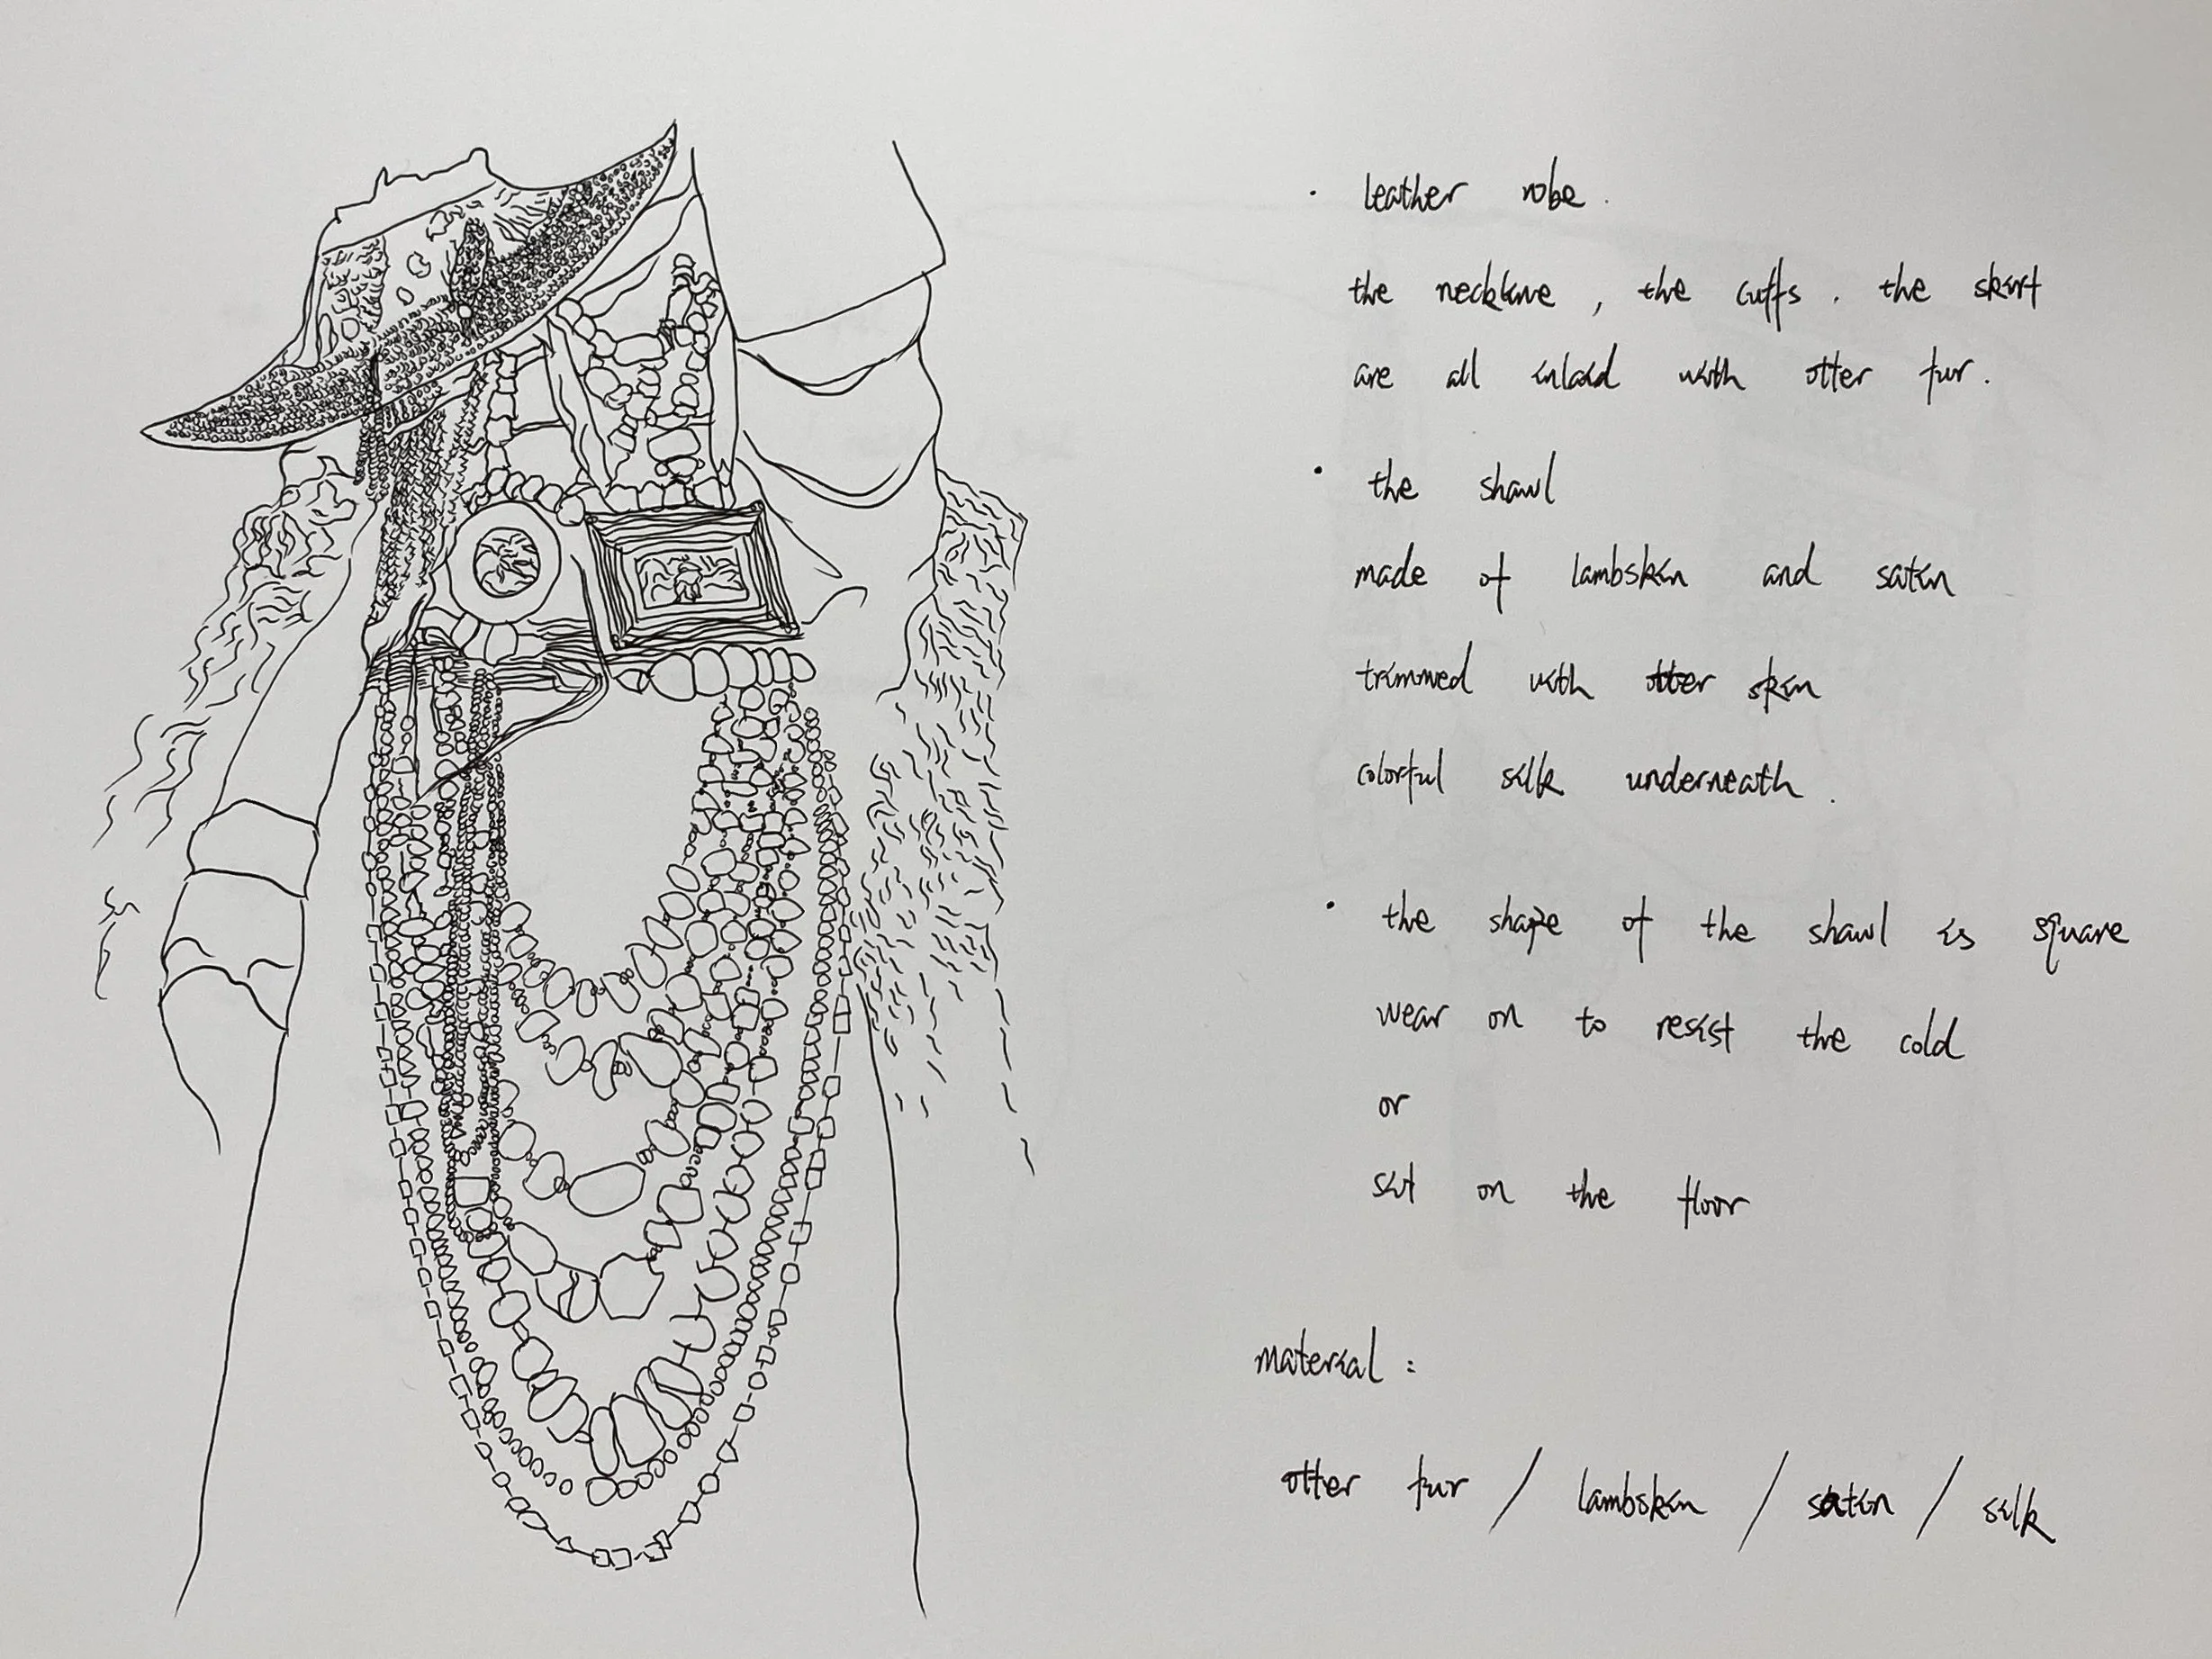 · leather robe.
the neckline, the cuffs. the skirt
are all inlaid with otter fur.
· the shawl
made of lambskin and satin
trimmed with otter skin
colorful silk underneath.
· the shape of the shawl is square
wear on to resist the cold
or
sit on the floor
material:
otter fur / lambskin / satin / silk